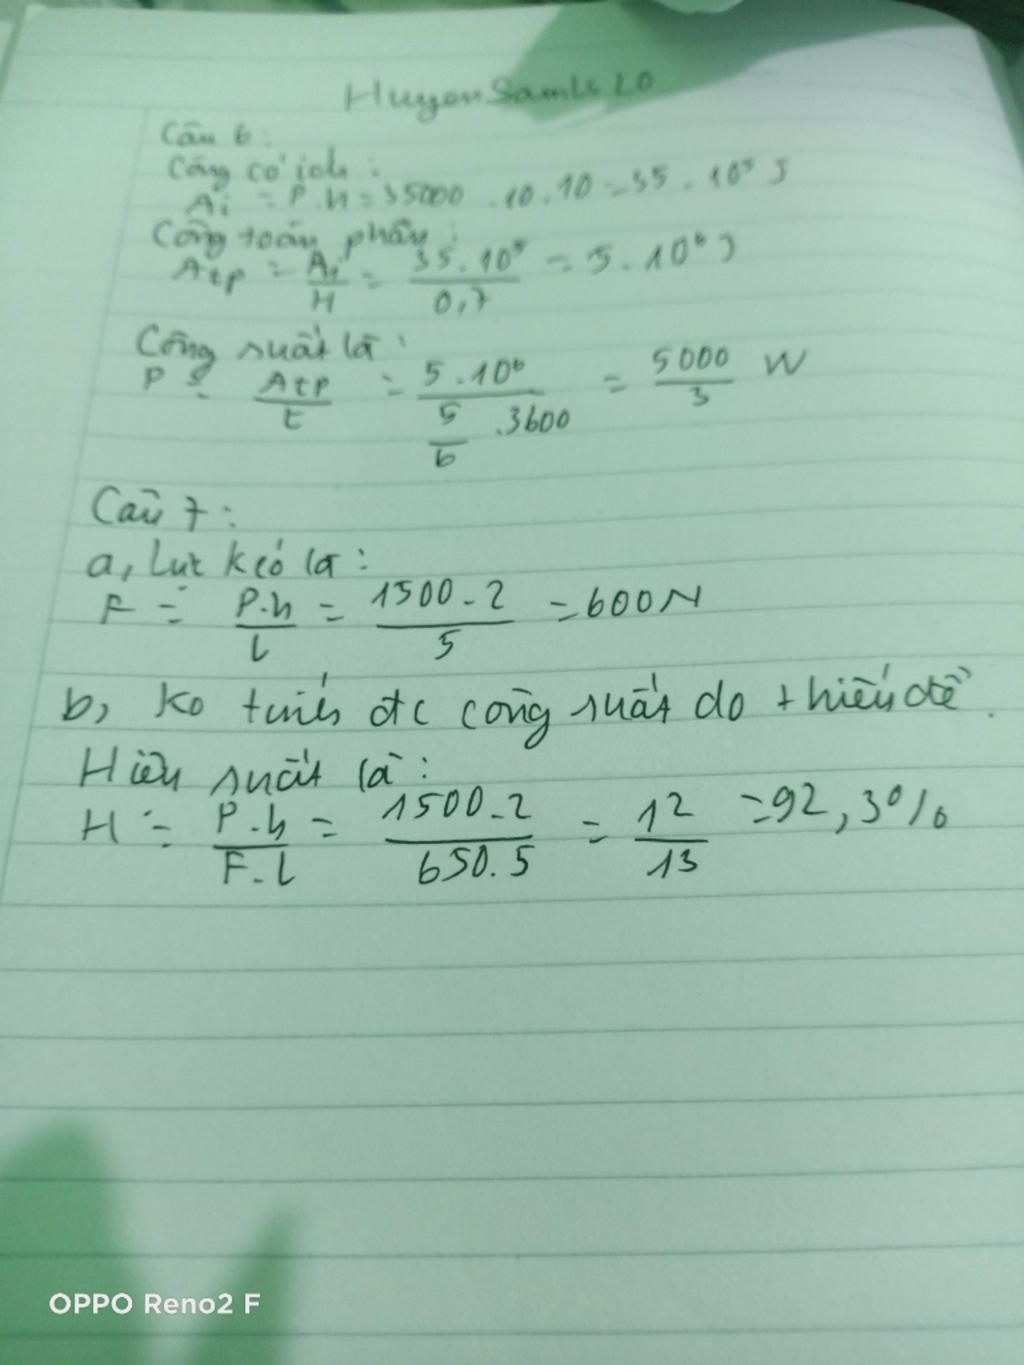 Câu 6:
Công có ích:
Ai = P.h = 35000 .10.10 = 35.10⁵ J
Công toàn phần:
Atp = Ai/H = 35.10⁵/0,7 = 5.10⁶ J
Công suất là:
P = Atp/t = 5.10⁶/(5/6 .3600) = 5000/3 W
Câu 7:
a, Lực kéo là:
F = P.h/l = 1500.2/5 = 600N
b, Ko tính đc công suất do thiếu đề.
Hiệu suất là:
H = P.h/F.l = 1500.2/650.5 = 12/13 = 92,3%
OPPO Reno2 F